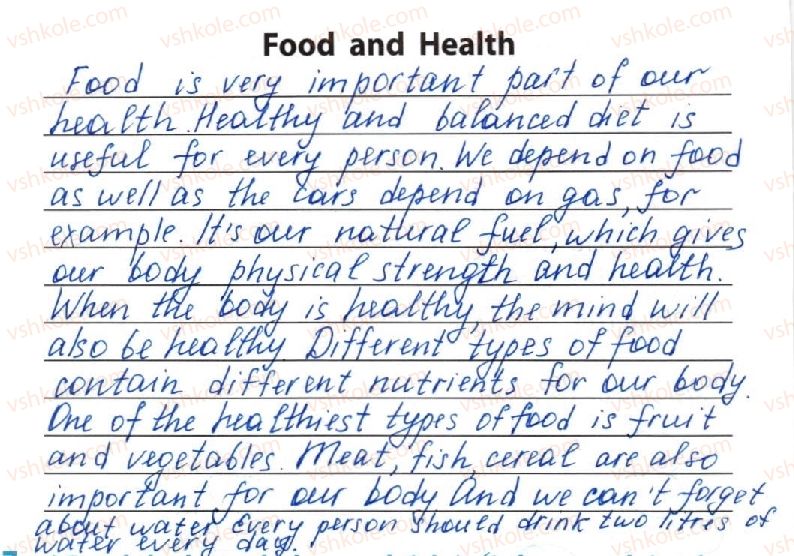 Food and Health
Food is very important part of our
health. Healthy and balanced diet is
useful for every person. We depend on food
as well as the cars depend on gas, for
example. It's our natural fuel, which gives
our body physical strength and health.
When the body is healthy, the mind will
also be healthy. Different types of food
contain different nutrients for our body.
One of the healthiest types of food is fruit
and vegetables. Meat, fish, cereal are also
important for our body. And we can't forget
about water. Every person should drink two litres of
water every day.